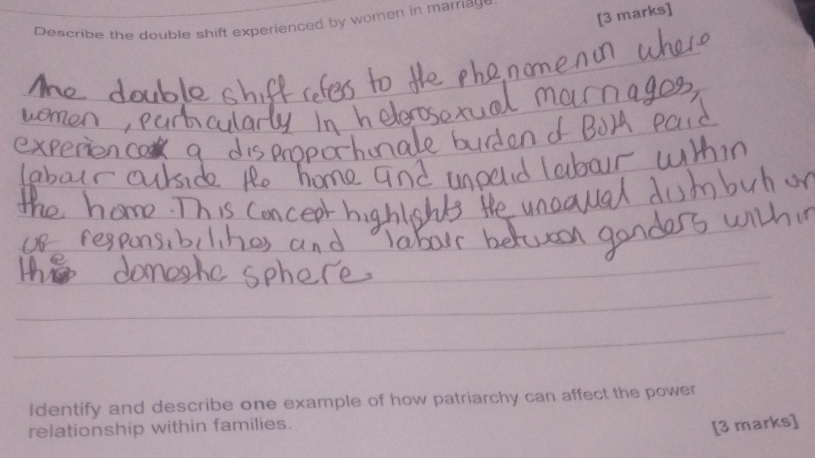 Describe the double shift experienced by women in marriage.
[3 marks]
The double shift refers to the phenomenon where
women, particularly in heterosexual marriages,
experience a disproportionate burden of Both paid
labour outside the home and unpaid labour within
the home. This concept highlights the unequal distribution
of responsibilities and labour between genders within
the domestic sphere.
Identify and describe one example of how patriarchy can affect the power
relationship within families.
[3 marks]